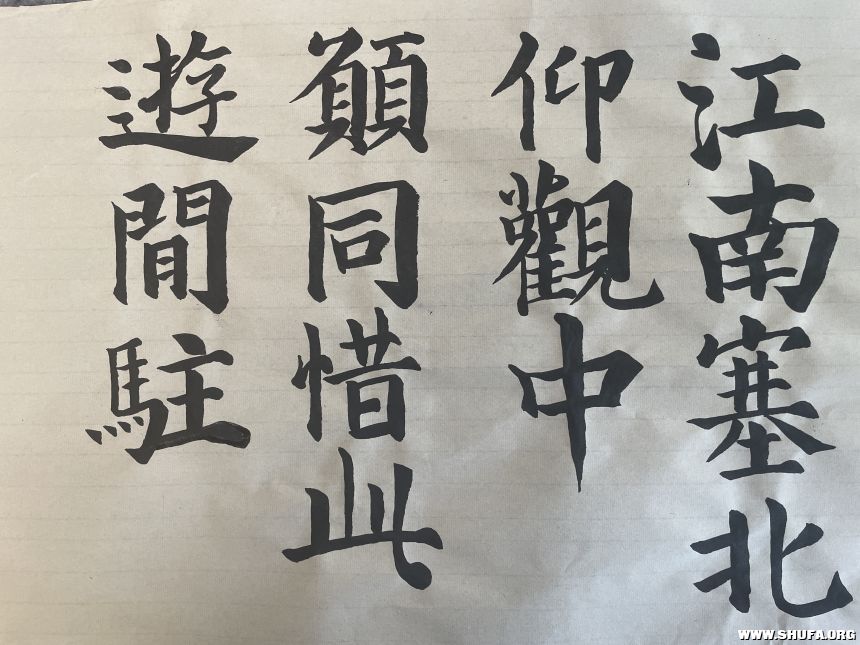 江南塞北
仰觀中
願同惜此
遊間駐
WWW.SHUFA.ORG